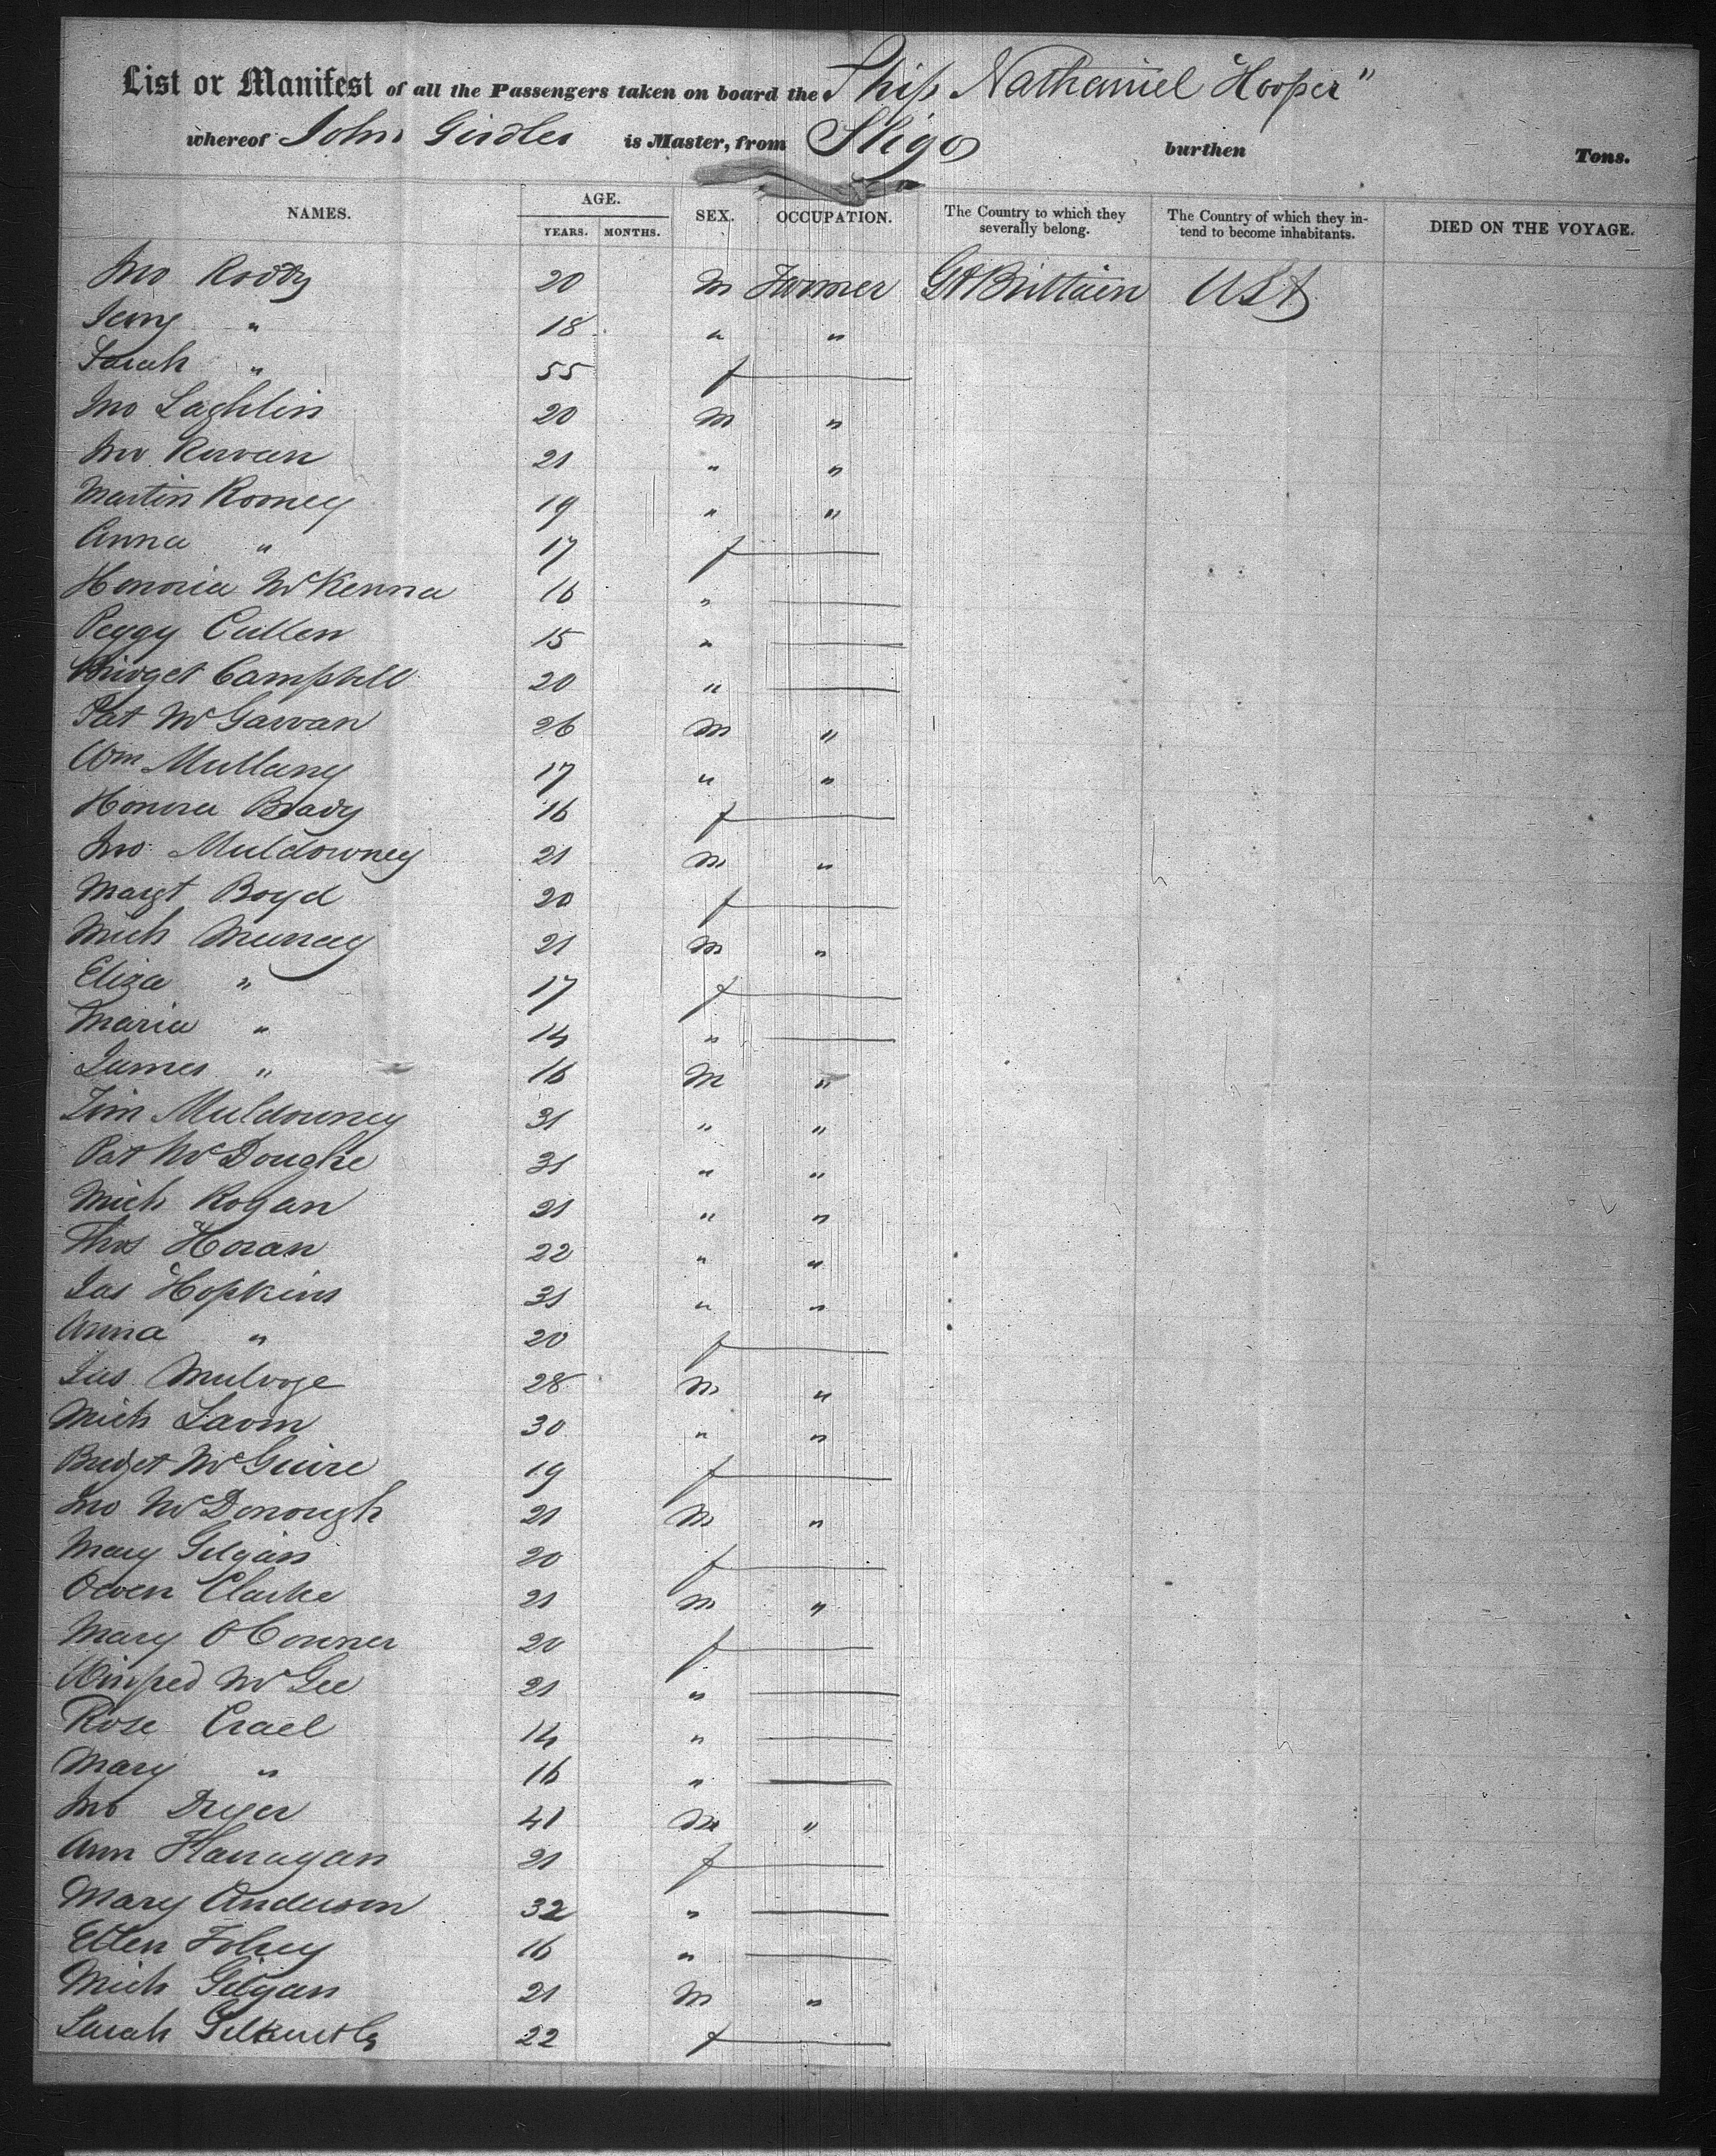 List or Manifest of all the Passengers taken on board the Ship Nathaniel Hooper"
whereof John Girdler is Master, from Sligo burthen Tons.
NAMES. AGE. YEARS. MONTHS. SEX. OCCUPATION. The Country to which they severally belong. The Country of which they intend to become inhabitants. DIED ON THE VOYAGE.
Jno Roddy 20 M Farmer Gt Brittain USA
18 " "
Sarah " 55 f
Jno Laghlin 20 M "
Jno Kirvan 21 " "
Martin Romey 19 " "
Anna " 17 f
Honoria McKenna 16 "
Peggy Cullen 15 "
Bridget Campbell 20 "
Pat McGarvan 26 M "
Wm Mullany 17 " "
Honora Brady 16 f
Jno Muldowney 21 M "
Margt Boyd 20 f
Mich Murray 21 M "
Eliza " 17 f
Maria " 14 "
James " 16 M "
Tim Muldowney 31 " "
Pat 31 " "
Mich Rogan 21 " "
Thos Horan 22 " "
Jas Hopkins 31 " "
Anna " 20 f
Jas 28 M "
Mich Lavin 30 " "
Bridget McGuire 19 f
Jno McDonough 21 M "
Mary Gilgan 20 f
Owen Clarke 21 M "
Mary OConner 20 f
Winifred McGee 21 "
Rose Crael 14 "
Mary " 16 "
Jno Dwyer 41 M "
Ann Flanagan 21 f
Mary Anderson 32 "
Ellen Foley 16 "
Mich Gilgan 21 M "
Sarah 22 f